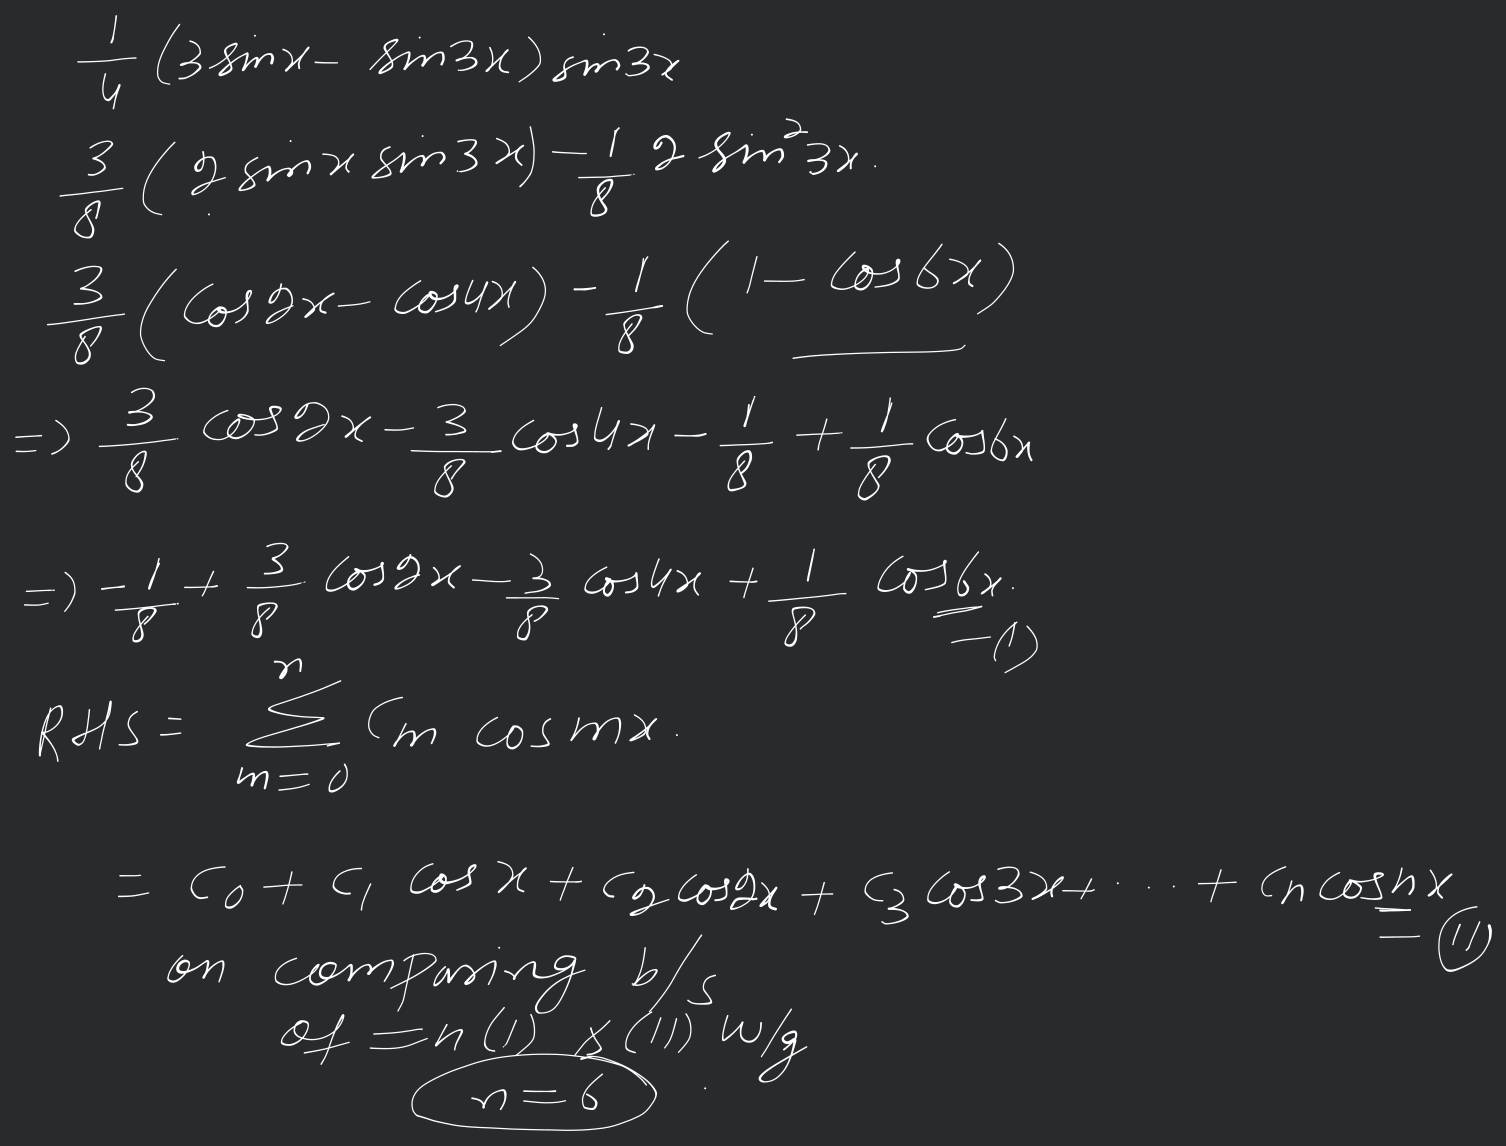 1/4 (3 sinx - sin3x) sin3x
3/8 (2 sinx sin3x) - 1/8 2 sin²3x.
3/8 (cos2x - cos4x) - 1/8 (1 - cos6x)
=> 3/8 cos2x - 3/8 cos4x - 1/8 + 1/8 cos6x
=> -1/8 + 3/8 cos2x - 3/8 cos4x + 1/8 cos6x. -(1)
RHS = n∑m=0 Cm cos mx.
= C₀ + C₁ cos x + C₂ cos2x + C₃ cos3x + ... + Cn cos nx -(11)
on comparing b/s
of =n (1) & (11) w/g
n=6